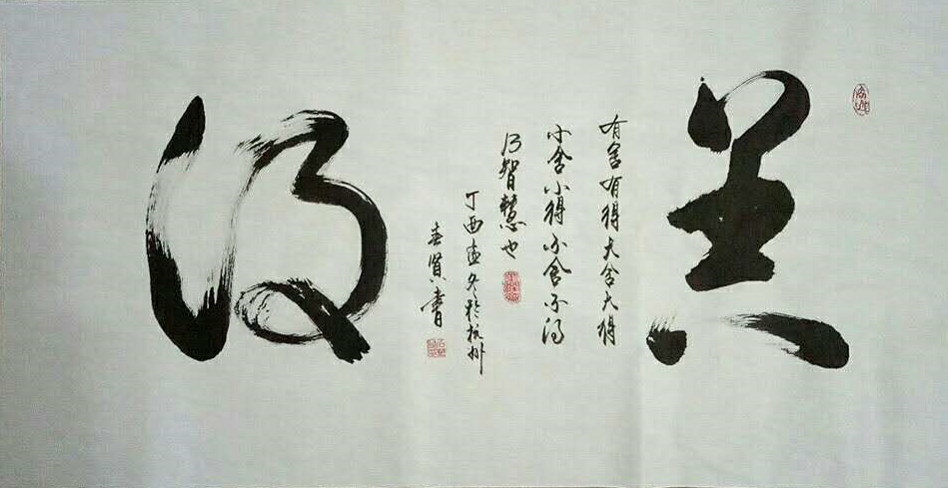 舍
有舍有得大舍大得
小舍小得不舍不得
乃智慧也
丁酉孟冬於杭州
賢書
得